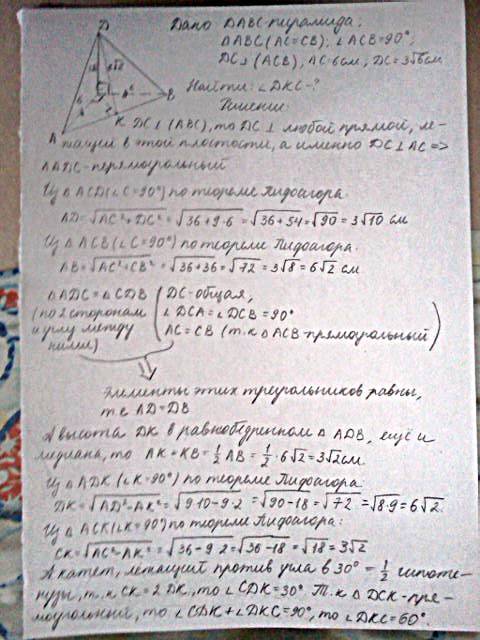 Дано DABC-пирамида;
△ABC (AC=CB); ∠ACB=90°;
DC⊥(ACB), AC=6см; DC=3√6см
Найти: ∠DKC-?
Решение:
DC⊥(ABC), то DC⊥ любой прямой, ле-
жащей в этой плоскости, а именно DC⊥AC =>
△ADC-перямоугольный
Из △ACD(∠C=90°) по теореме Пифагора
AD=√AC²+DC² = √36+9·6 = √36+54 = √90 = 3√10 см
Из △ACB(∠C=90°) по теореме Пифагора.
AB=√AC²+CB² = √36+36 = √72 = 3√8 = 6√2 см
△ADC=△CDB
(по 2 сторонам
и углу между
ними)
DC-общая,
∠DCA=∠DCB=90°
AC=CB (т.к △ACB-прямоугольный)
Элементы этих треугольников равны,
т.е AD=DB
А высота DK в равнобедренном △ADB, ещё и
медиана, то AK=KB=1/2 AB=1/2·6√2=3√2см.
Из △ADK (∠K=90°) по теореме Пифагора
DK=√AD²-AK² = √9·10-9·2 = √90-18 = √72 = √8·9 = 6√2.
Из △ACK(∠K=90°) по теореме Пифагора:
CK=√AC²-AK² = √36-9·2 = √36-18 = √18 = 3√2
А катет, лежащий против угла в 30° = 1/2 гипоте-
нузы, т.к CK=2DK, то ∠CDK=30°. Т.к △DCK-пря-
моугольный, то ∠CDK+∠DKC=90°, то ∠DKC=60°.
D
6√2
B
K
A